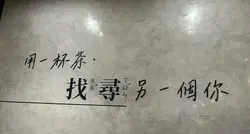 用一杯茶·
找尋另一個你